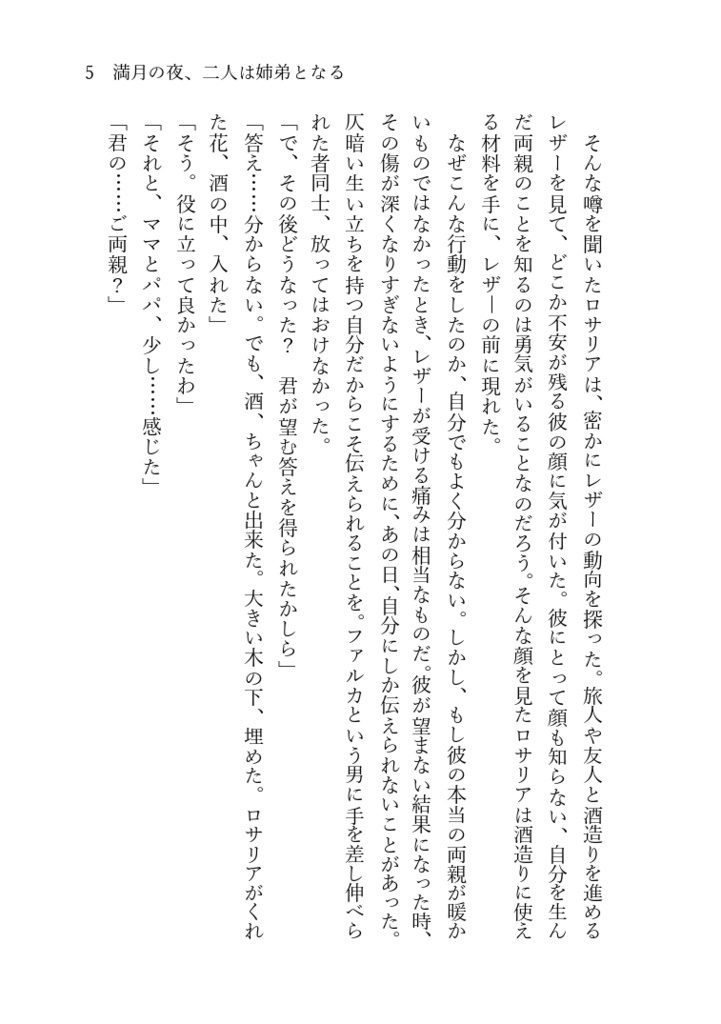 5　満月の夜、二人は姉弟となる
　そんな噂を聞いたロサリアは、密かにレザーの動向を探った。旅人や友人と酒造りを進める
レザーを見て、どこか不安が残る彼の顔に気が付いた。彼にとって顔も知らない、自分を生ん
だ両親のことを知るのは勇気がいることなのだろう。そんな顔を見たロサリアは酒造りに使え
る材料を手に、レザーの前に現れた。
　なぜこんな行動をしたのか、自分でもよく分からない。しかし、もし彼の本当の両親が暖か
いものではなかったとき、レザーが受ける痛みは相当なものだ。彼が望まない結果になった時、
その傷が深くなりすぎないようにするために、あの日、自分にしか伝えられないことがあった。
仄暗い生い立ちを持つ自分だからこそ伝えられることを。ファルカという男に手を差し伸べら
れた者同士、放ってはおけなかった。
「で、その後どうなった？　君が望む答えを得られたかしら」
「答え……分からない。でも、酒、ちゃんと出来た。大きい木の下、埋めた。ロサリアがくれ
た花、酒の中、入れた」
「そう。役に立って良かったわ」
「それと、ママとパパ、少し……感じた」
「君の……ご両親？」